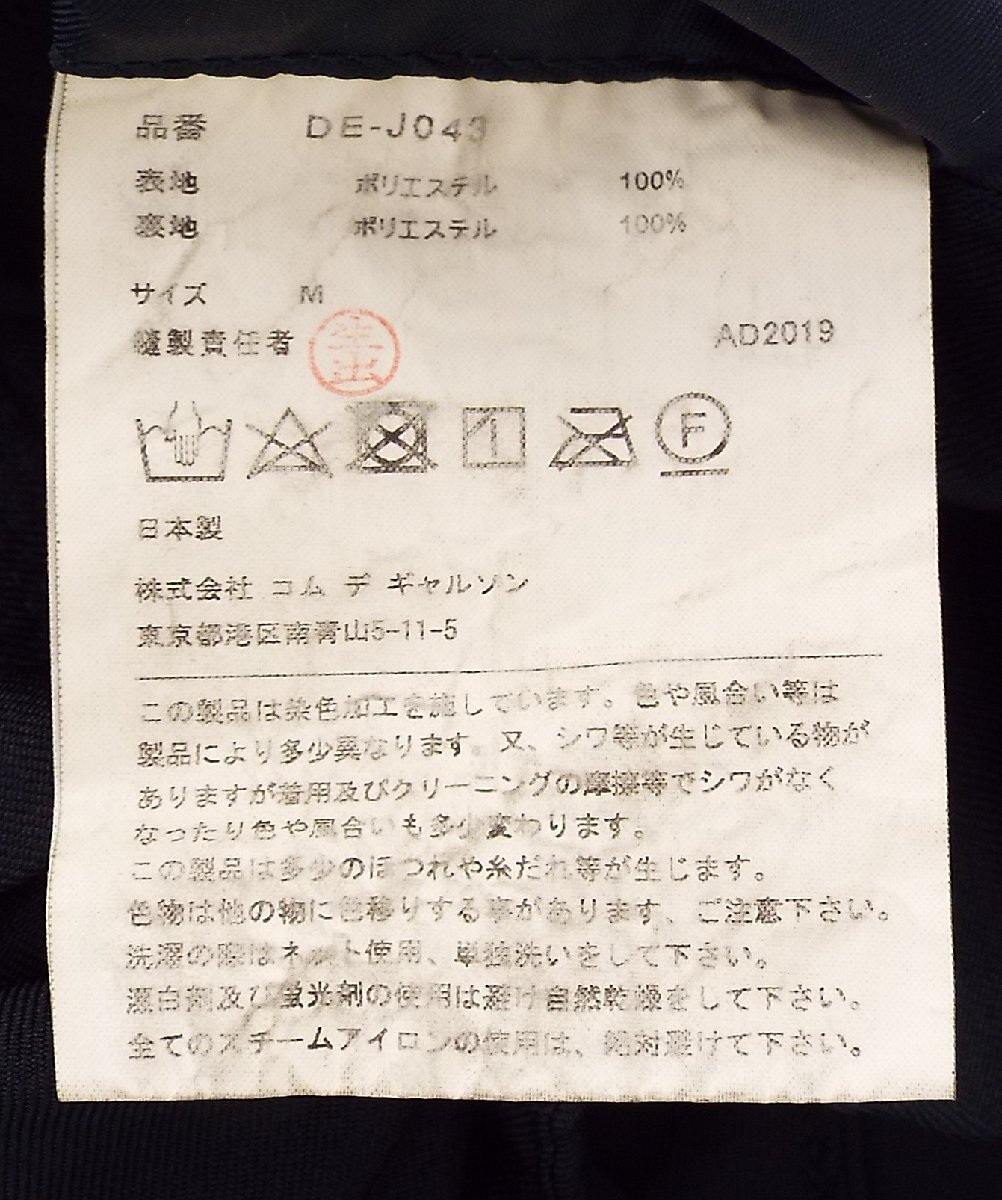 品番 DE-J043
表地 ポリエステル 100%
裏地 ポリエステル 100%
サイズ M
縫製責任者 生出 AD2019
F
日本製
株式会社 コム デ ギャルソン
東京都港区南青山5-11-5
この製品は染色加工を施しています。色や風合い等は
製品により多少異なります。又、シワ等が生じている物が
ありますが着用及びクリーニングの摩擦等でシワがなく
なったり色や風合いも多少変わります。
この製品は多少のほつれや糸だれ等が生じます。
色物は他の物に色移りする事があります、ご注意下さい。
洗濯の際はネット使用、単独洗いをして下さい。
漂白剤及び蛍光剤の使用は避け自然乾燥をして下さい。
全てのスチームアイロンの使用は、絶対避けて下さい。